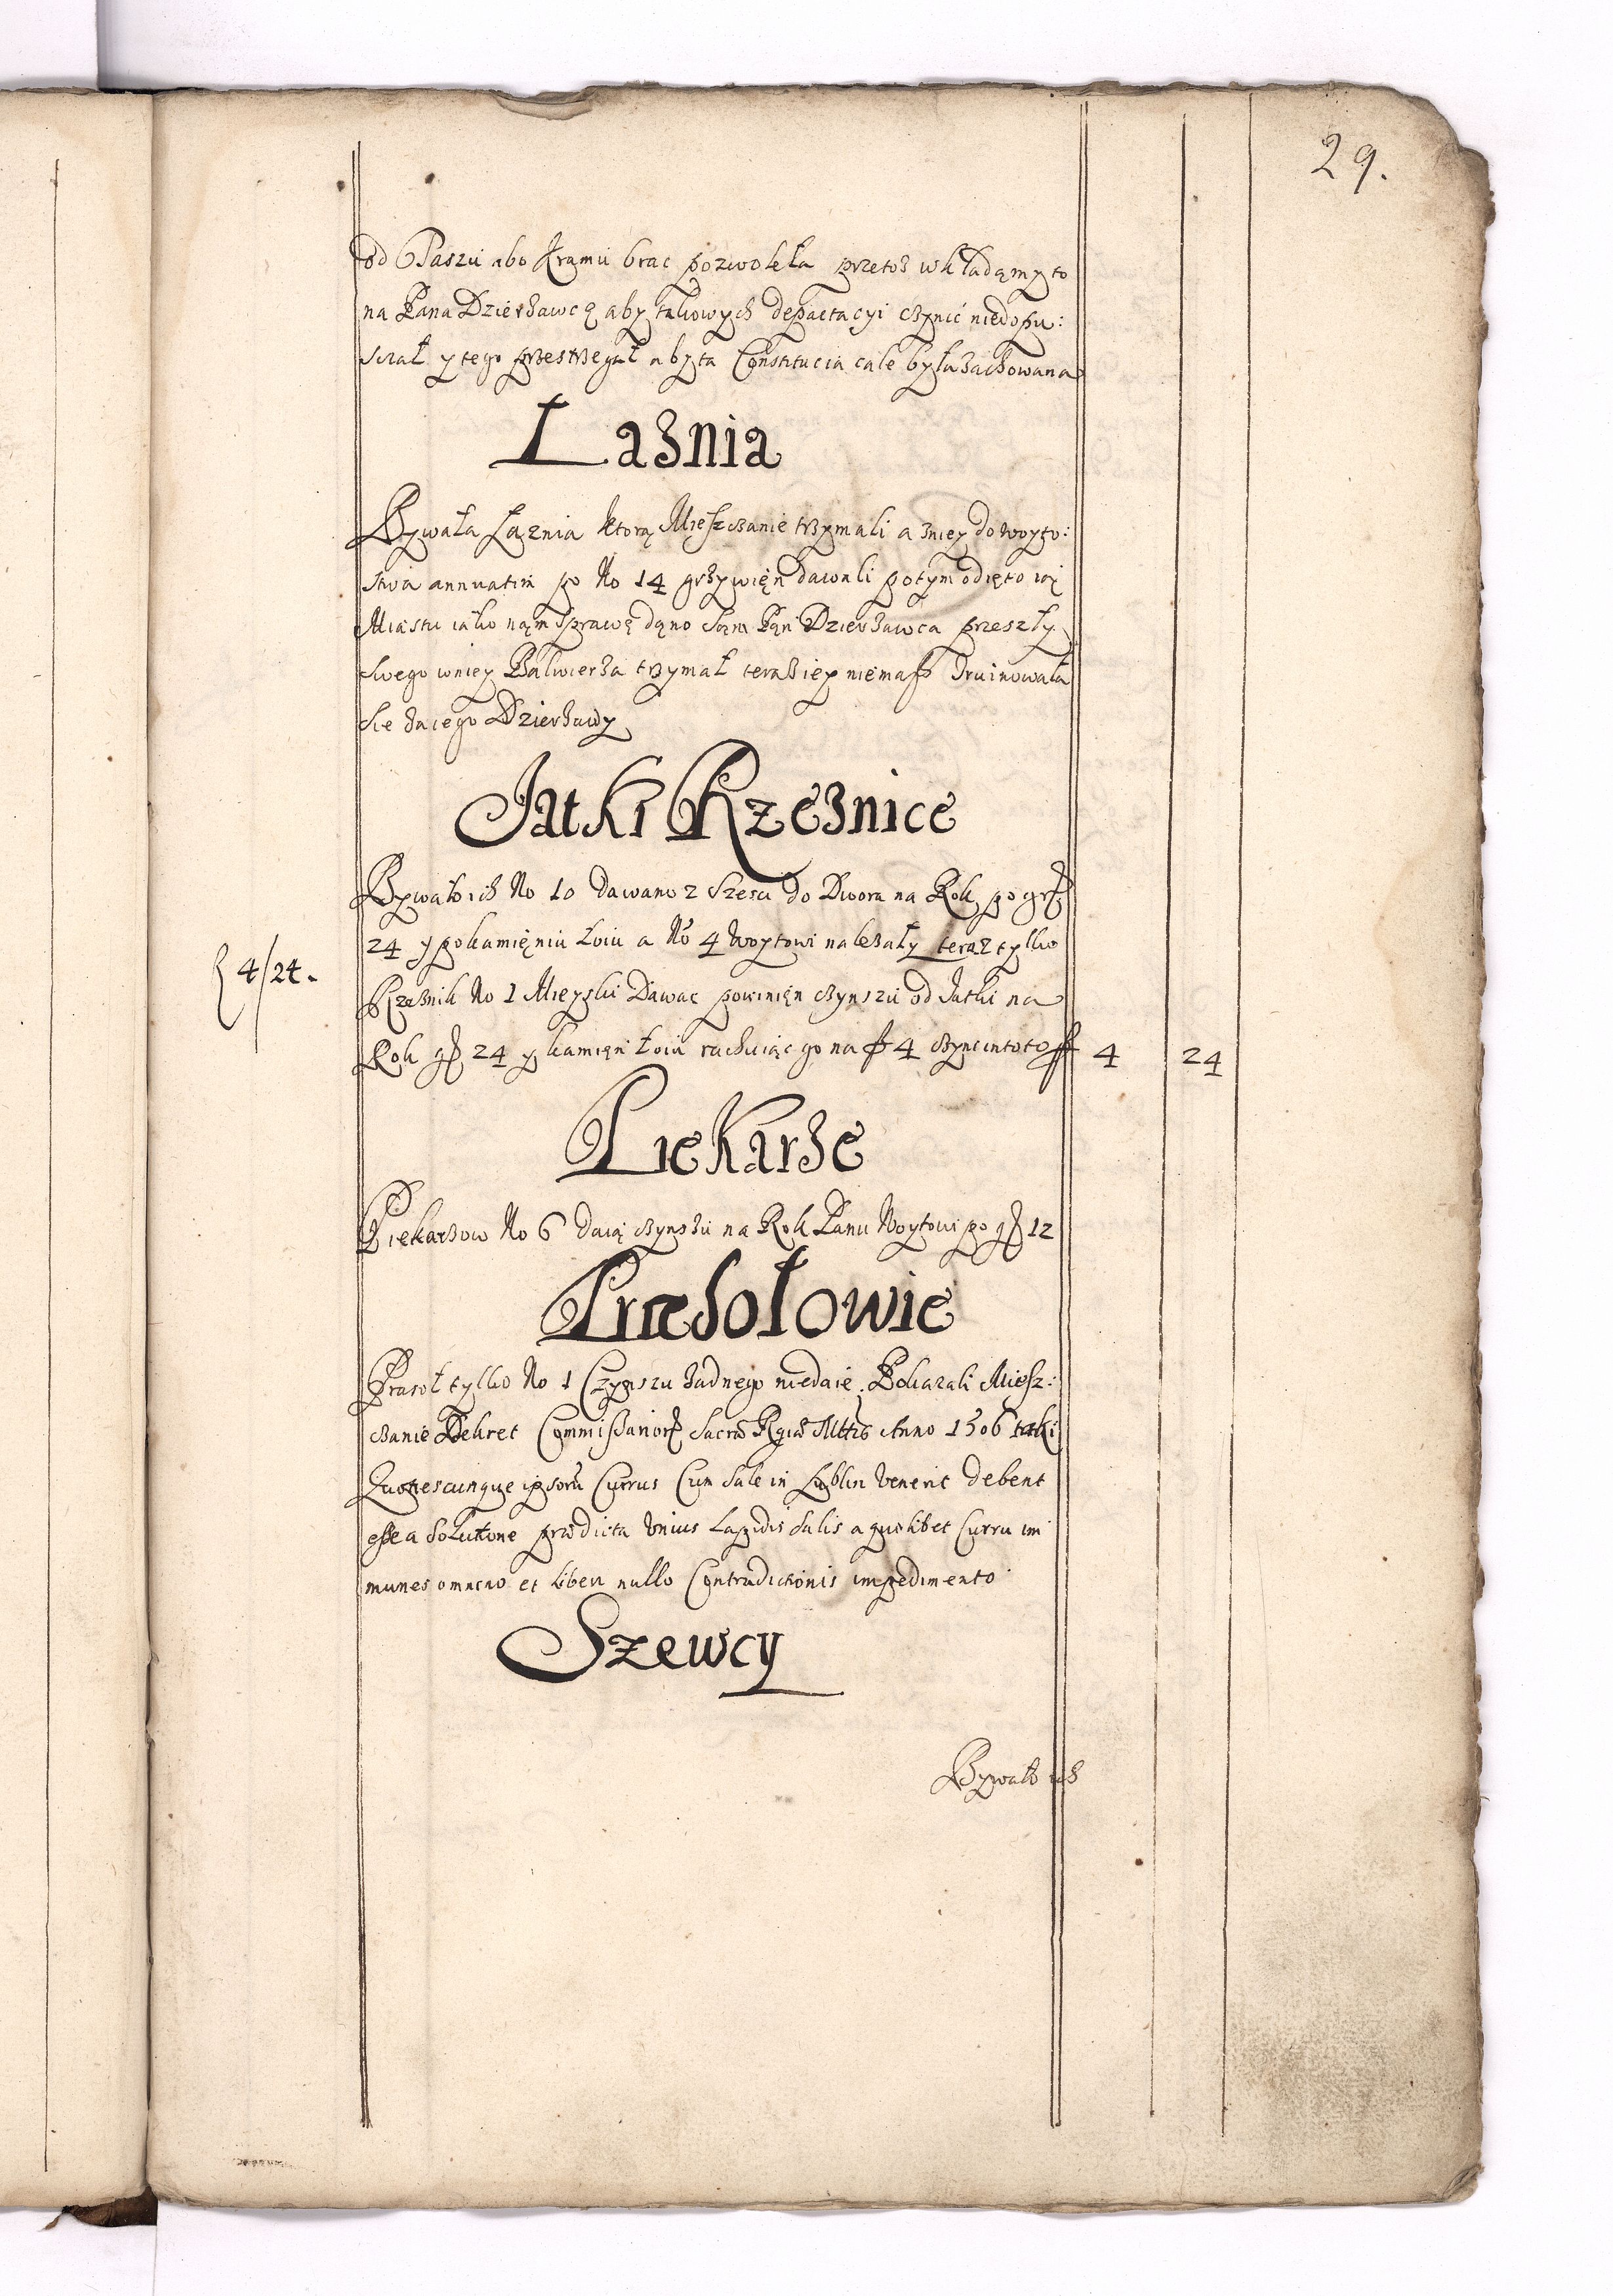 29.
od Płaszu abo Kramu brac pozwoleła przetoż wkładamy to
na Pana Dzierżawcę aby takowych depactacyi czynić niedopu:
sczał y tego przestrzegał aby ta Constitucia cale była zachowana
Łaznia
Bywała Łaznia ktorą Mieszczanie trzymali a zniey do woyto:
stwa annuatim po No 14 grzywien dawali potym odięto ią
Miastu iako nam sprawę dano sam Pan Dzierżawca przeszły
swego wniey Balwierza trzymał teraz iey niemasz zruinowała
sie za iego Dzierżawy
Jatki Rzeznice
Bywało ich No 10 dawano z szesci do Dwora na Rok po gr
24 y po kamięniu łoiu a No 4 Woytowi należały teraz tylko
Rzeznik No 1 Mieyski Dawac powinięn czynszu od Jatki na
Rok gr 24 y kamięn Łoiu rachuiąc go na f 4 czyni in toto f 4 24
4/24.
Piekarze
Piekarzow No 6 daią czynszu na Rok Panu Woytowi po gr 12
Prasołowie
Prasoł tylko No 1 Czynszu żadnego niedaie. Pokazali Miesz:
czanie Dekret Commissarior Sacræ Rgiæ Mttis Anno 1506 taki
Quotiescunque ipsorum Currus Cum Sale in Lublin venerit Debent
esse a solutione prædicta vnius Lapidis salis a quolibet Curru im
munes omnino et liberi nullo Contradictionis impedimento
Szewcy
Bywało ich